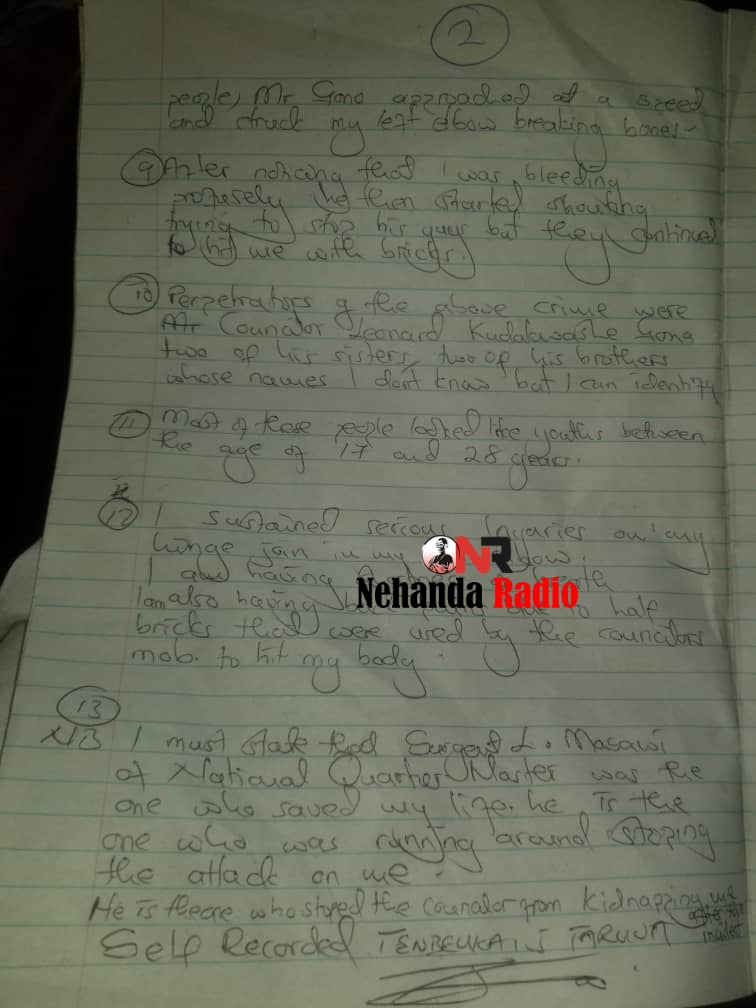 2
people, Mr Gono approached at a speed
and struck my left elbow breaking bones -
9 After noticing that I was bleeding
profusely he then started shouting
trying to stop his guys but they continued
to hit me with bricks.
10 Perpetrators of the above crime were
Mr Councilor Leonard Kudakwashe Gono
two of his sisters, two of his brothers
whose names I don't know but I can identify
11 Most of these people looked like youths between
the age of 17 and 28 years.
12 I sustained serious injuries on my
hinge join in my
I am having
I am also having half
bricks that were used by the councilors
mob. to hit my body.
NR
Nehanda Radio
13
NB I must state that Surgent L. Masawi
of National Quarter Master was the
one who saved my life. he is the
one who was running around stoping
the attack on me.
He is theone who stoped the councilor from kidnapping me after the incident
Self Recorded TENDEUKAI J TARUVA